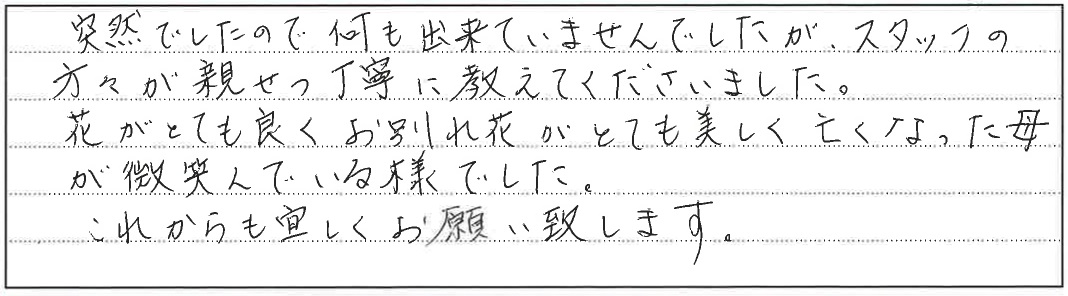 突然でしたので何も出来ていませんでしたが、スタッフの
方々が親せつ丁寧に教えてくださいました。
花がとても良くお別れ花がとても美しく亡くなった母
が微笑んでいる様でした。
これからも宜しくお願い致します。